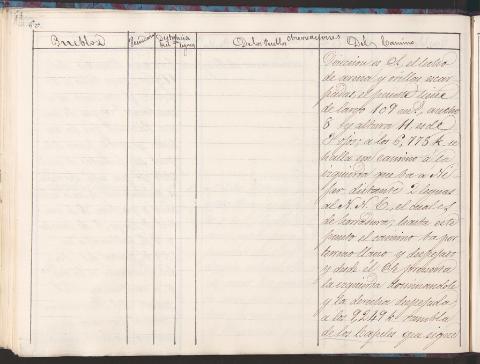 Pueblos
Vecindario
Distancia
Observaciones
De los Pueblos
Del Camino
Direccion es el lecho
de arena y orillas escar
padas, el puente tiene
de largo 109 m, ancho
8 y altura 11 es de
9 ojos; a los 6,775 k se
halla un camino á la
izquierda que va a
por distante 2 leguas
al N. N. E, el cual es
de herradura; hasta este
punto el camino va por
terreno llano y despejado
y desde él presenta
la izquierda dominandole
y la derecha despejada
a los 9,249 k rambla
de los que sigue